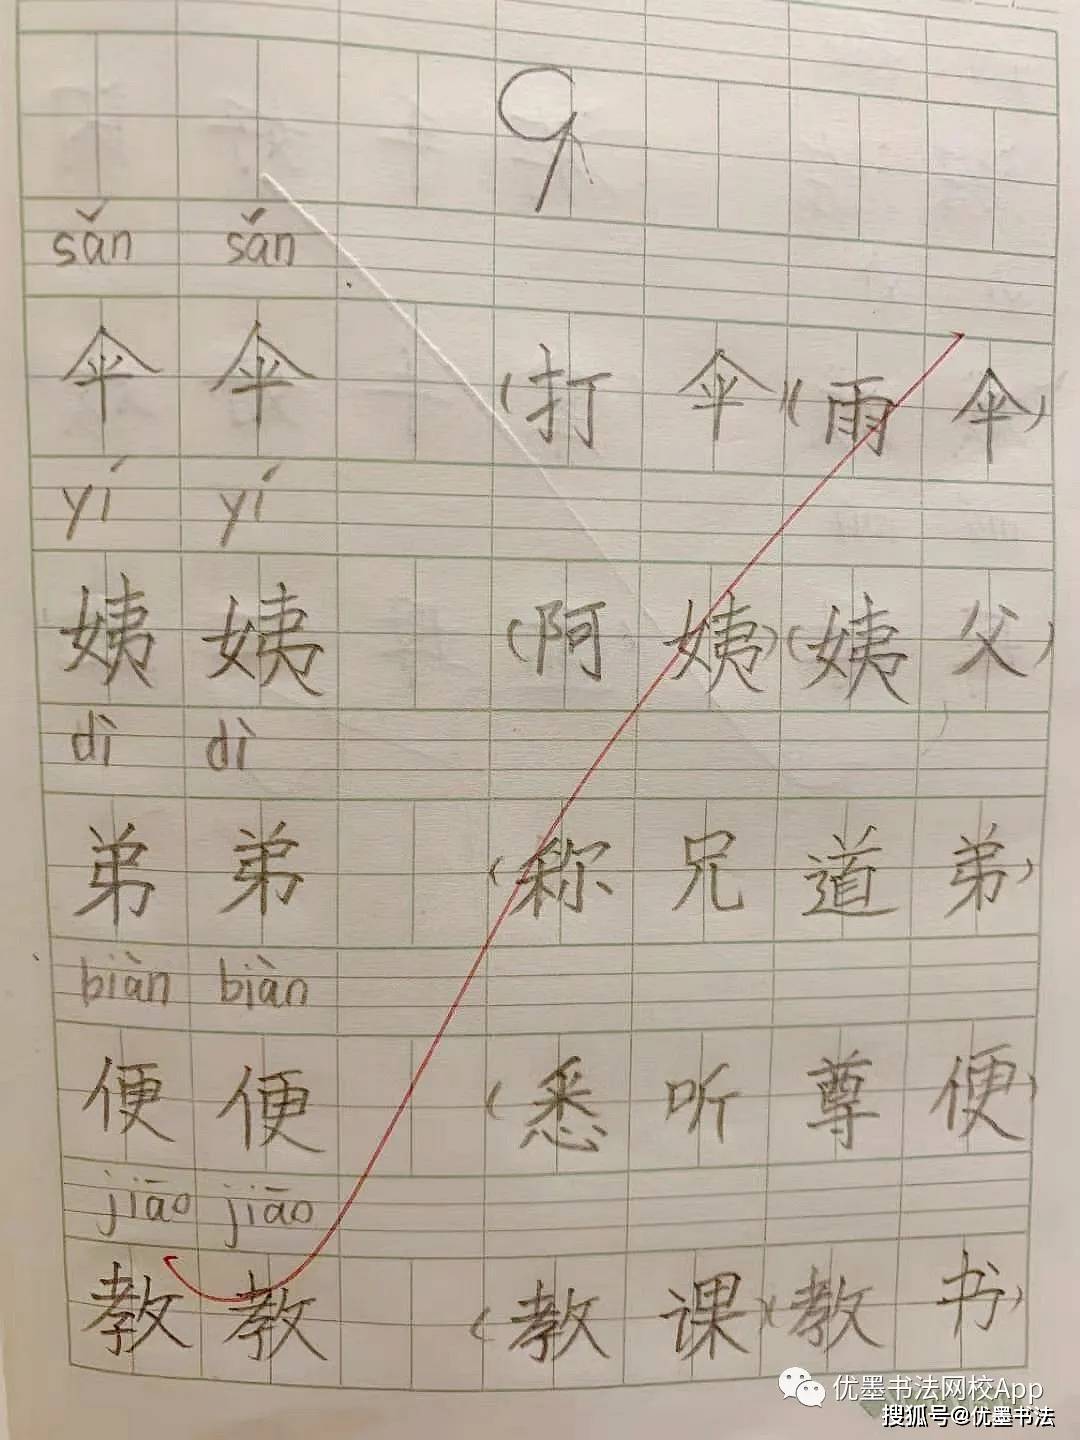 9
sǎn sǎn
伞 伞 (打 伞)(雨 伞)
yí yí
姨 姨 (阿 姨)(姨 父)
dì dì
弟 弟 (称 兄 道 弟)
biàn biàn
便 便 (悉 听 尊 便)
jiāo jiāo
教 教 (教 课)(教 书)
优墨书法网校App
搜狐号@优墨书法